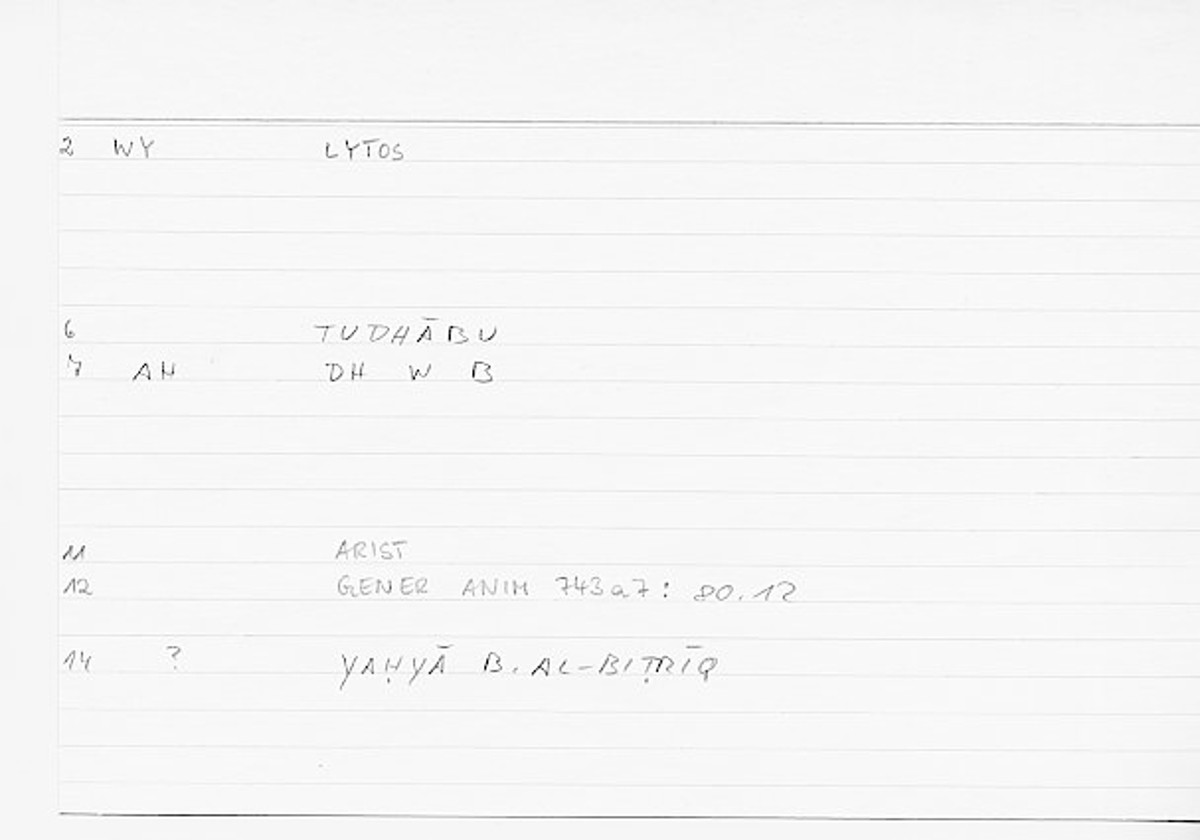 2 WY LYTOS
6 TUDHĀBU
7 AH DH W B
11 ARIST
12 GENER ANIM 743a7: 80.12
14 ? YAḤYĀ B. AL-BIṬRĪQ